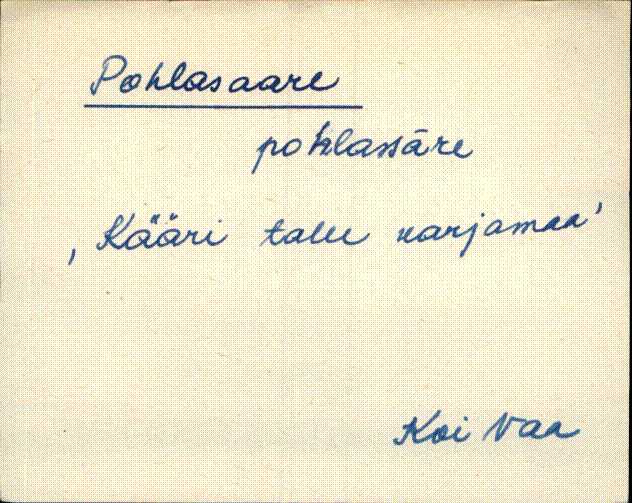 Pohlasaare
pohlassāre
, Kääri talu karjamaa '
Koi Vaa